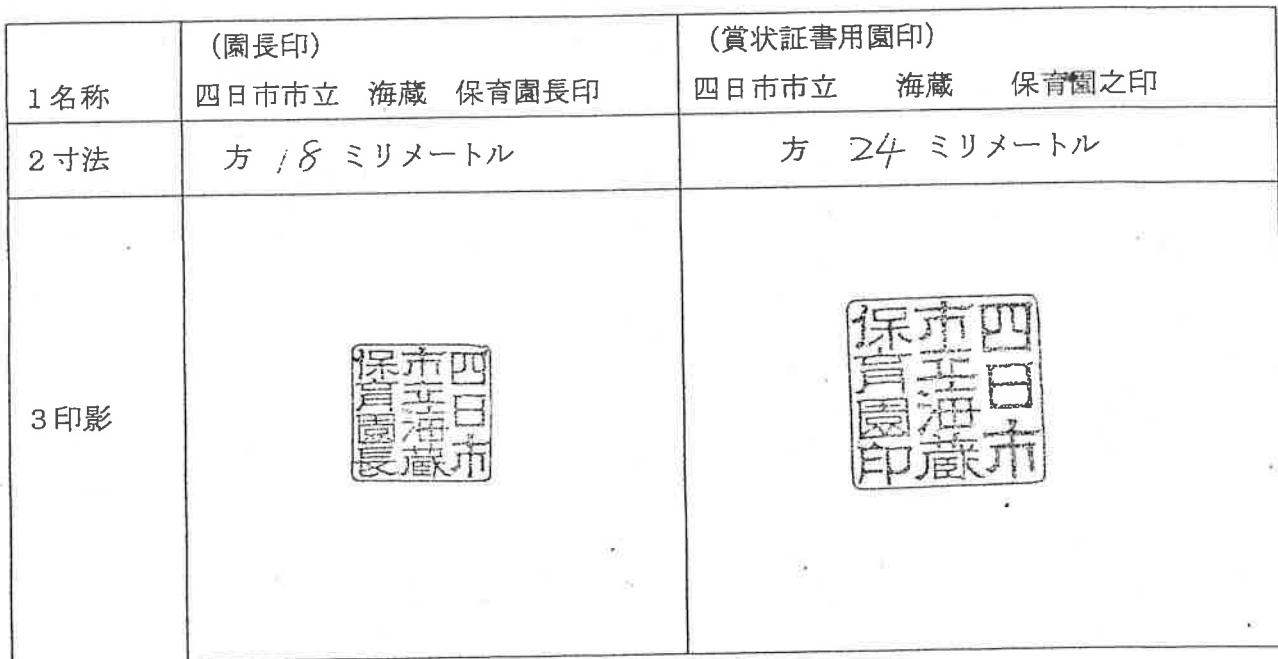 1名称
(園長印)
四日市市立 海蔵 保育園長印
(賞状証書用園印)
四日市市立 海蔵 保育園之印
2寸法
方 18 ミリメートル
方 24 ミリメートル
3印影
四日市
市立海蔵
保育園長
四日市
市立海蔵
保育園印